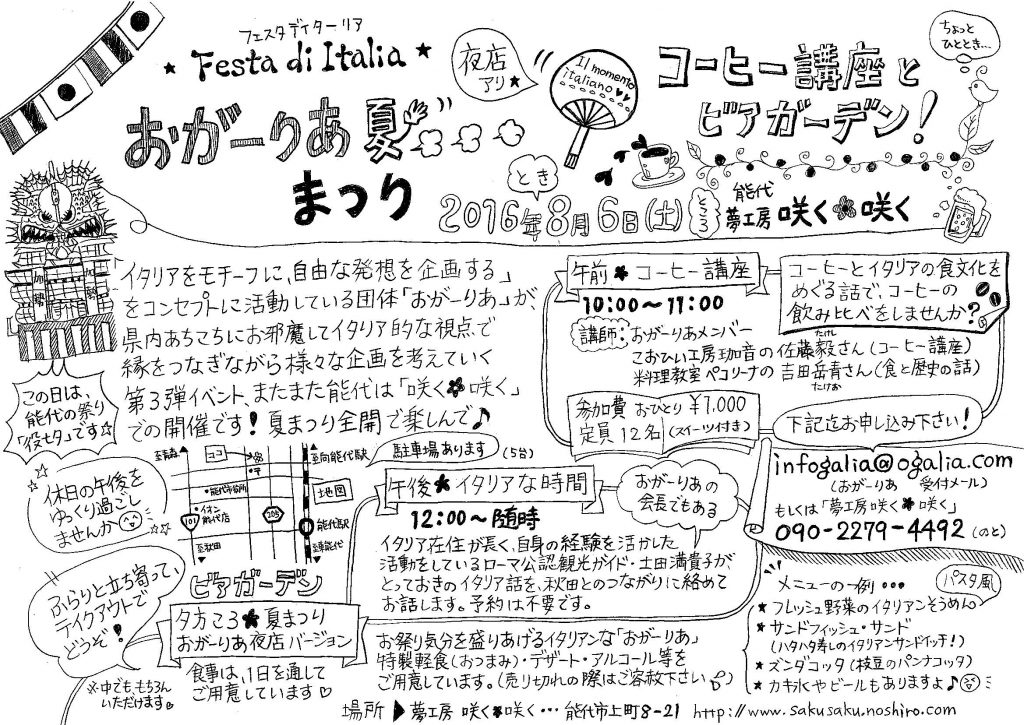 フェスタディターリア
★ Festa di Italia ★
おがーりあ夏
まつり
夜店
アリ★
Il momento
italiano
コーヒー講座と
ビアガーデン!
ちょっと
ひととき…
とき
2016年8月6日(土)
ところ
能代
夢工房 咲く✽咲く
「イタリアをモチーフに、自由な発想を企画する」
をコンセプトに活動している団体「おがーりあ」が
県内あちこちにお邪魔してイタリア的な視点で
縁をつなぎながら様々な企画を考えていく
第3弾イベント、またまた能代は「咲く✽咲く」
での開催です!夏まつり全開で楽しんで♪
この日は、
能代の祭り
「役七夕」です☆
午前✽コーヒー講座
10:00～11:00
コーヒーとイタリアの食文化を
めぐる話で、コーヒーの
飲み比べをしませんか?
講師:おがーりあメンバー
こおひい工房珈音の佐藤毅さん(コーヒー講座)
たけし
料理教室ペコリーナの吉田岳青さん(食と歴史の話)
たけお
参加費 おひとり ¥1,000
定員 12名 (スイーツ付き)
下記迄お申し込み下さい!
infogalia@ogalia.com
(おがーりあ 受付メール)
もしくは「夢工房咲く✽咲く」
090-2279-4492 (のと)
休日の午後を
ゆっくり過ごし
ませんか
至青森
ココ
〒
至向能代駅
駐車場あります(5台)
・能代市役所
地図
・イオン
能代店
101
205
能代駅
至秋田
至東能代
午後✽イタリアな時間
12:00～随時
おがーりあの
会長でもある
イタリア在住が長く、自身の経験を活かした
活動をしているローマ公認観光ガイド・土田満貴子が
とっておきのイタリア話を、秋田とのつながりに絡めて
お話します。予約は不要です。
ふらりと立ち寄って、
テイクアウトで
どうぞ!
ビアガーデン
夕方ころ✽夏まつり
おがーりあ夜店バージョン
食事は、1日を通して
ご用意しています♡
※中でも、もちろん
いただけます♡
お祭り気分を盛りあげるイタリアンな「おがーりあ」
特製軽食(おつまみ)・デザート・アルコール等を
ご用意しています。(売り切れの際はご容赦下さい)
メニューの一例…
パスタ風
★フレッシュ野菜のイタリアンそうめん
★サンドフィッシュ・サンド
(ハタハタ寿しのイタリアンサンドイッチ!)
★ズンダコッタ(枝豆のパンナコッタ)
★カキ氷やビールもありますよ♪
場所▶夢工房 咲く✽咲く…能代市上町8-21 http://www.sakusaku.noshiro.com